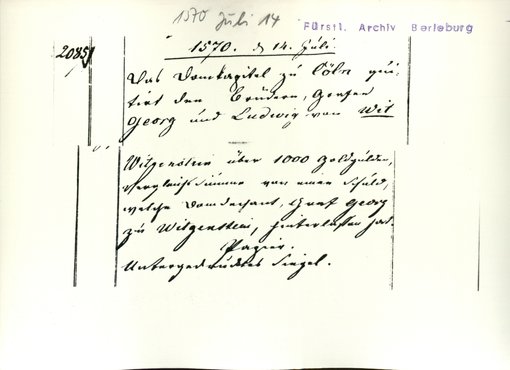 1570 Juli 14
Fürstl. Archiv Berleburg
2085
1570. d. 14. Juli.
Das Domkapitel zu Cöln qui-
tirt den Brüdern, Grafen
Georg und Ludwig von Wit
Witgenstein über 1000 Goldgulden,
Vergleichssumme von einer Schuld,
welche Domdechant, Graf Georg
zu Witgenstein, hinterlassen hat.
Papier.
Untergedrucktes Siegel.